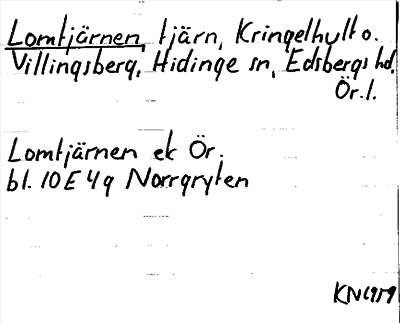 Lomtjärnen, tjärn, Kringelhult o.
Villingsberg, Hidinge sn, Edsbergs hd.
Ör.l.
Lomtjärnen ek Ör.
bl. 10E 4g Norrgryten